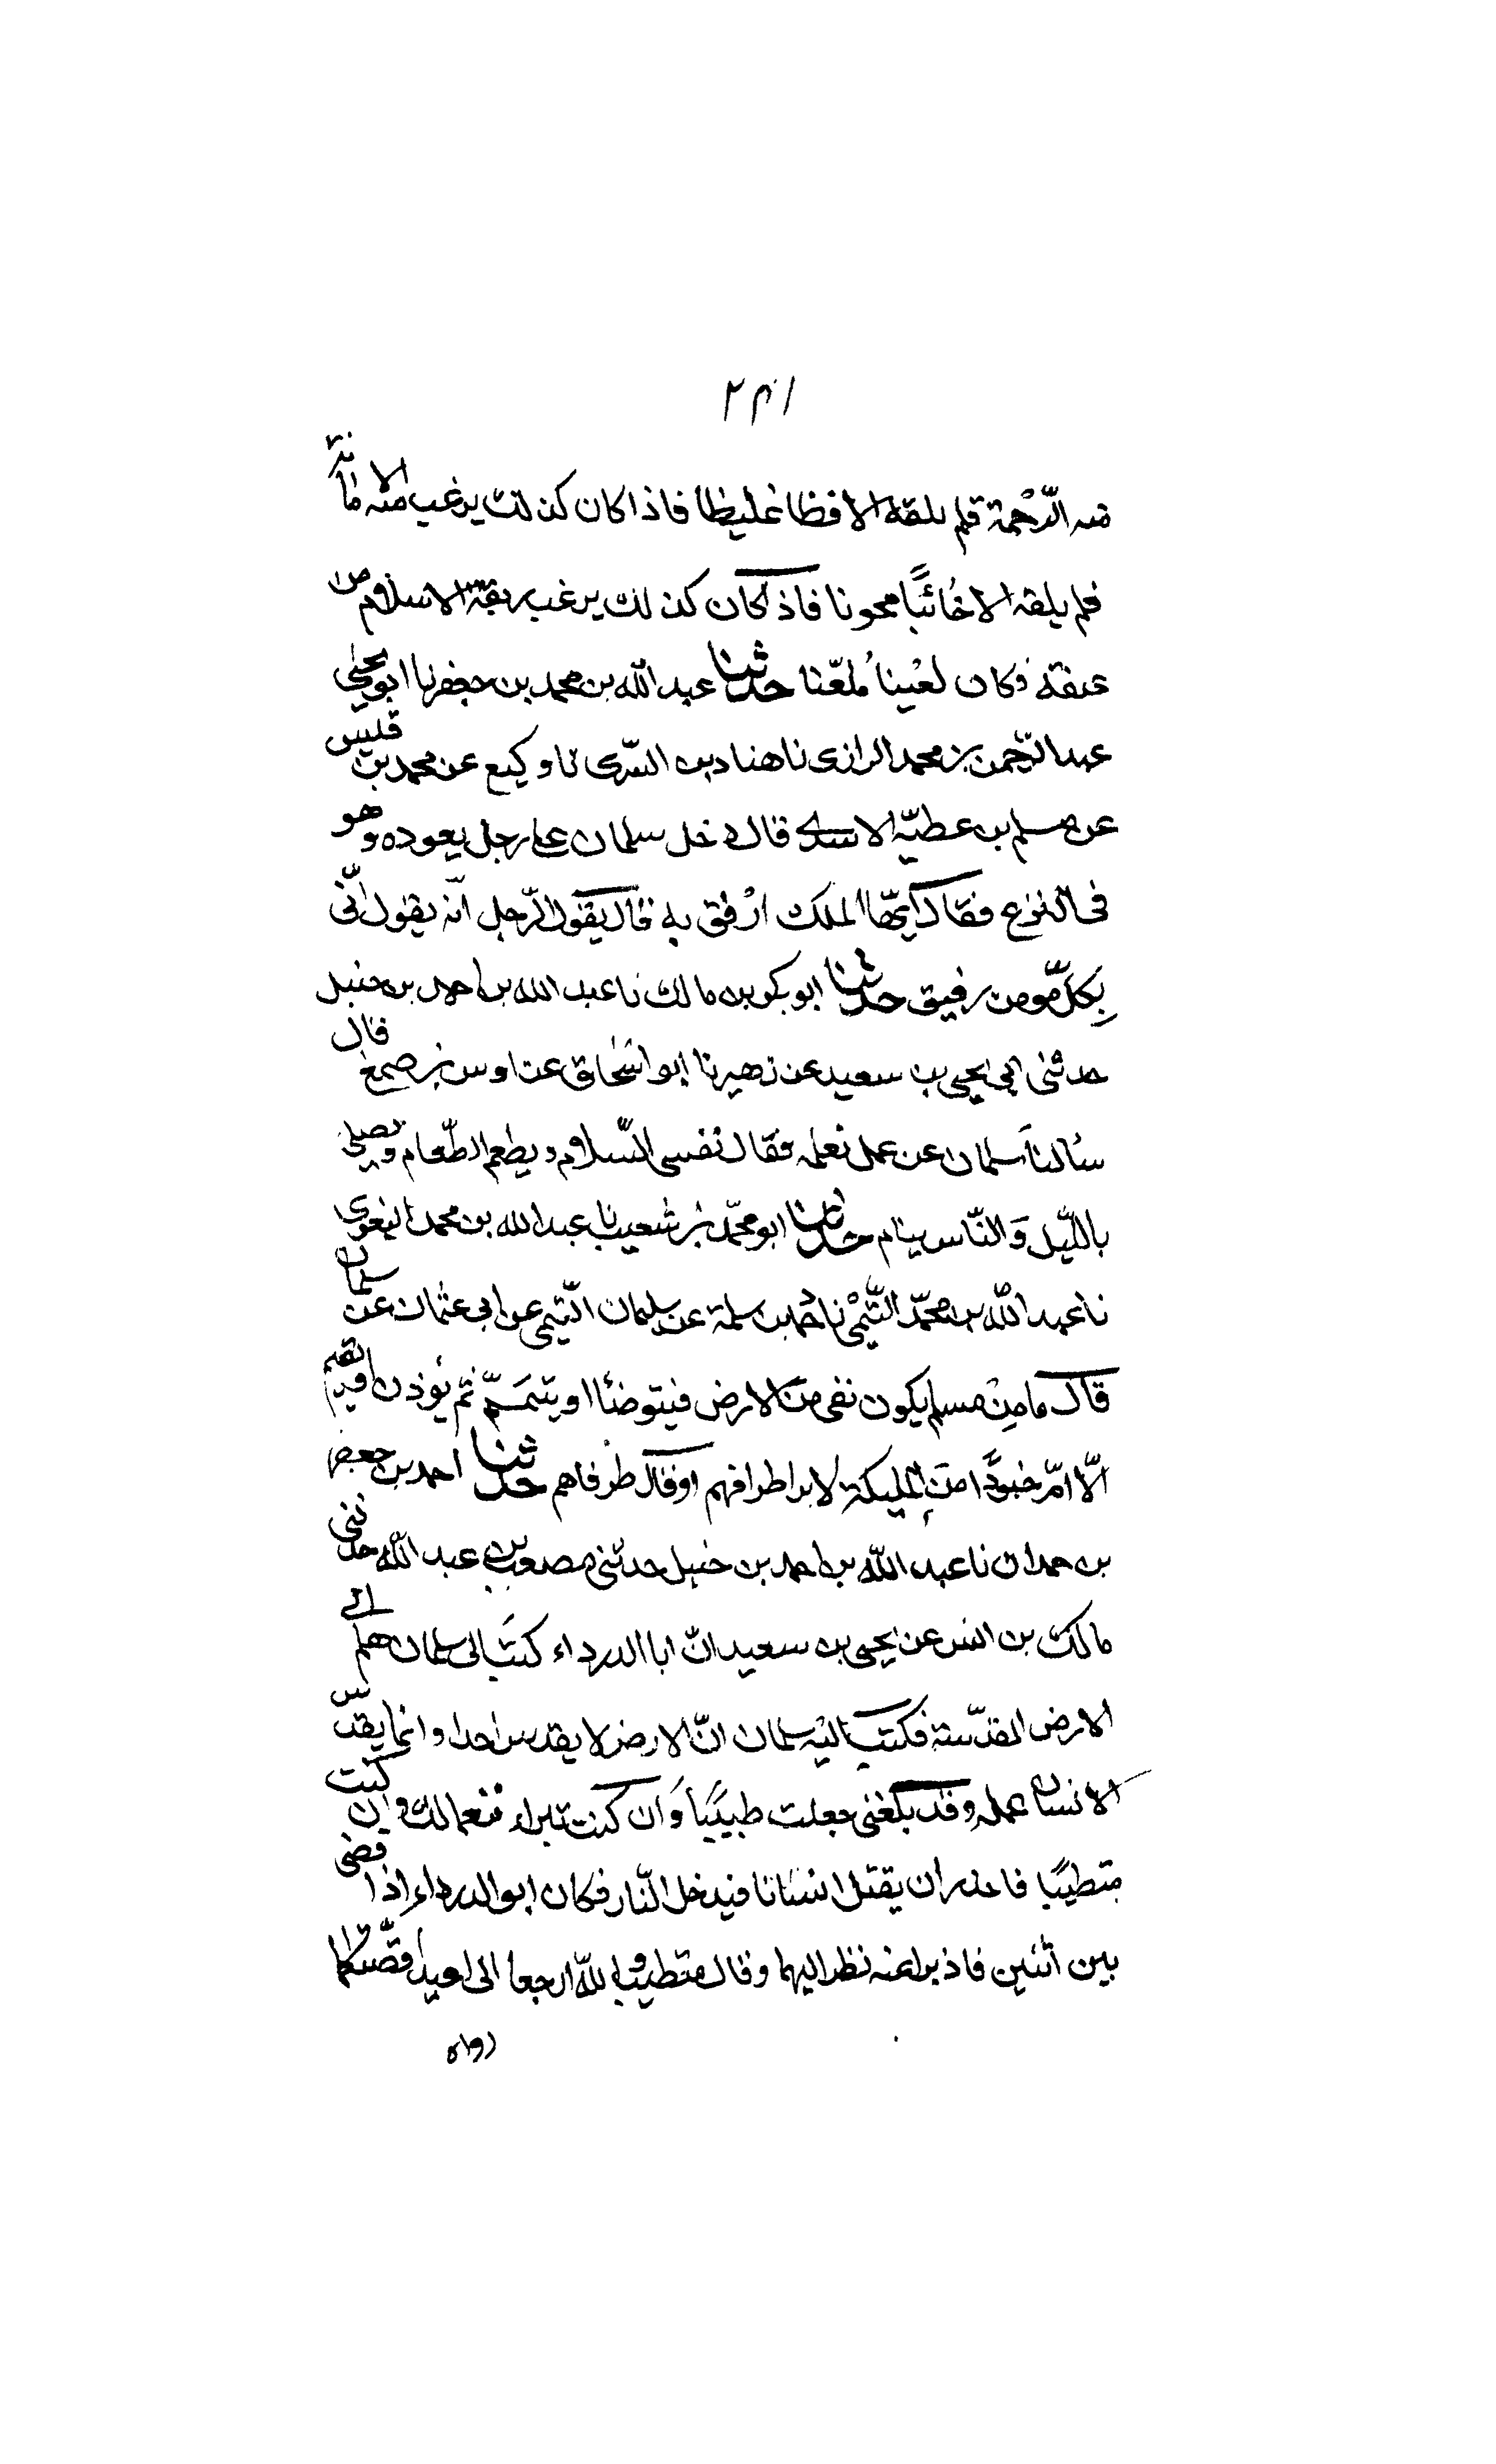 ٢٣١
منه الرّحمة فلم يلقه الا فظا غليظا فاذا كان كذلك يرغب منه الامانة
فلم يلقه الا خائنًا مخونا فاذا كان كذلك يرغب ربقة الاسلام من
عنقه وكان لعينا مُلعّنا حدثنا عبد الله بن محمد بن جعفر نا ابو يحيى
عبد الرّحمن بن محمد الرازى نا هناد بن السّرى نا وكيع عن محمد بن قليس
عن مسلم بن عطيّه الاسدى قال دخل سلمان على رجل يعوده وهو
فى النزع فقال ايّها الملك ارْفق به قال يقول الرّجل انّه يقول انّى
بِكلّ مّومن رفيق حدثنا ابو بكر بن مالك نا عبد الله بن احمد بن حنبل
حدثنى ابى يحيى بن سعيد عن زهير نا ابو اسْحاق عن اوس بن ضمعج قال
سُالنا سلمان عن عمل نعلمه فقال نفسى السّلام ويطعم الطّعام ويصلى
باللّيل وَالنّاس ينام حدثنا ابو محمّد بن شعيب نا عبد الله بن محمد البغوى
نا عبد اللّه بن محمّد التّيْمى نا حماد بن سلمة عن سليمان التّيمى عن ابى عثمان عن سلمان
قال ما مِنْ مسلم يكون نفى من الارض فيتوضأ او يتيمّم ثم يُؤذن او يقيم
الّا امّ جنودًا من المليكة لا يرا طرافهم او قال طرفاهم حدثنا احمد بن جعفر
بن حمدان نا عبد اللّه بن احمد بن حنبل حدثنى مصعب بن عبد اللّه حدثنى
مالك بن انس عن يحيى بن سعيد انّ ابا الدرداء كتبَ الى سلمان هلم الى
الارض المقدّسة فكتب اليْه سلمان انّ الارض لا يقدس احدا وانما يقدّس
الانسان عمله وقد بلغنى جعلت طبيبًا وَان كنت تبراء فنعما لك وان كنت
متطببًا فاحذر ان يقتل انسَانا فيدخل النّار فكان ابو الدرداء اذا قضى
بين اثنين فاذ برا عنه نظر اليهما وقال متطبب واللّه ارجعا الى اعيدا قصّتكما
رواه